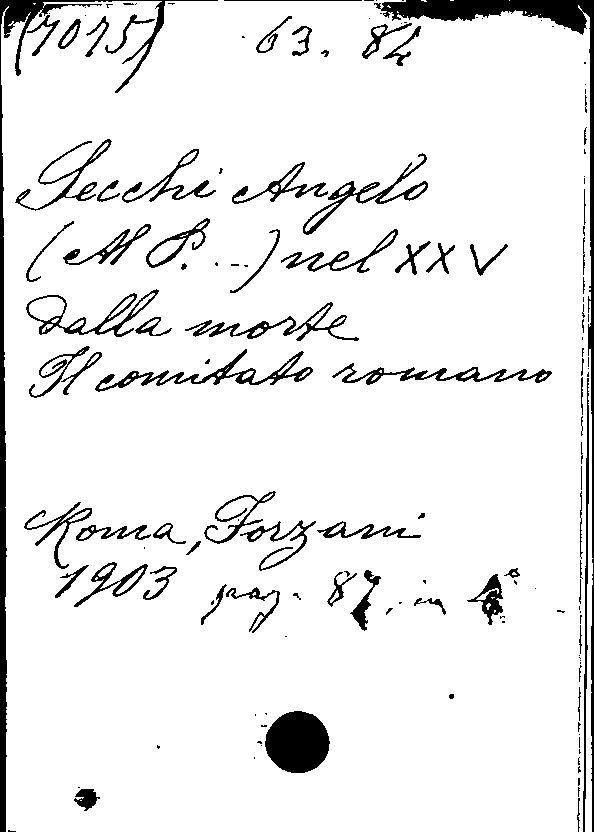 (7075) 63. 84
Secchi Angelo
(Al P. ...) nel XXV
dalla morte
Il comitato romano
Roma, Forzani
1903 pag. 87, in 4°